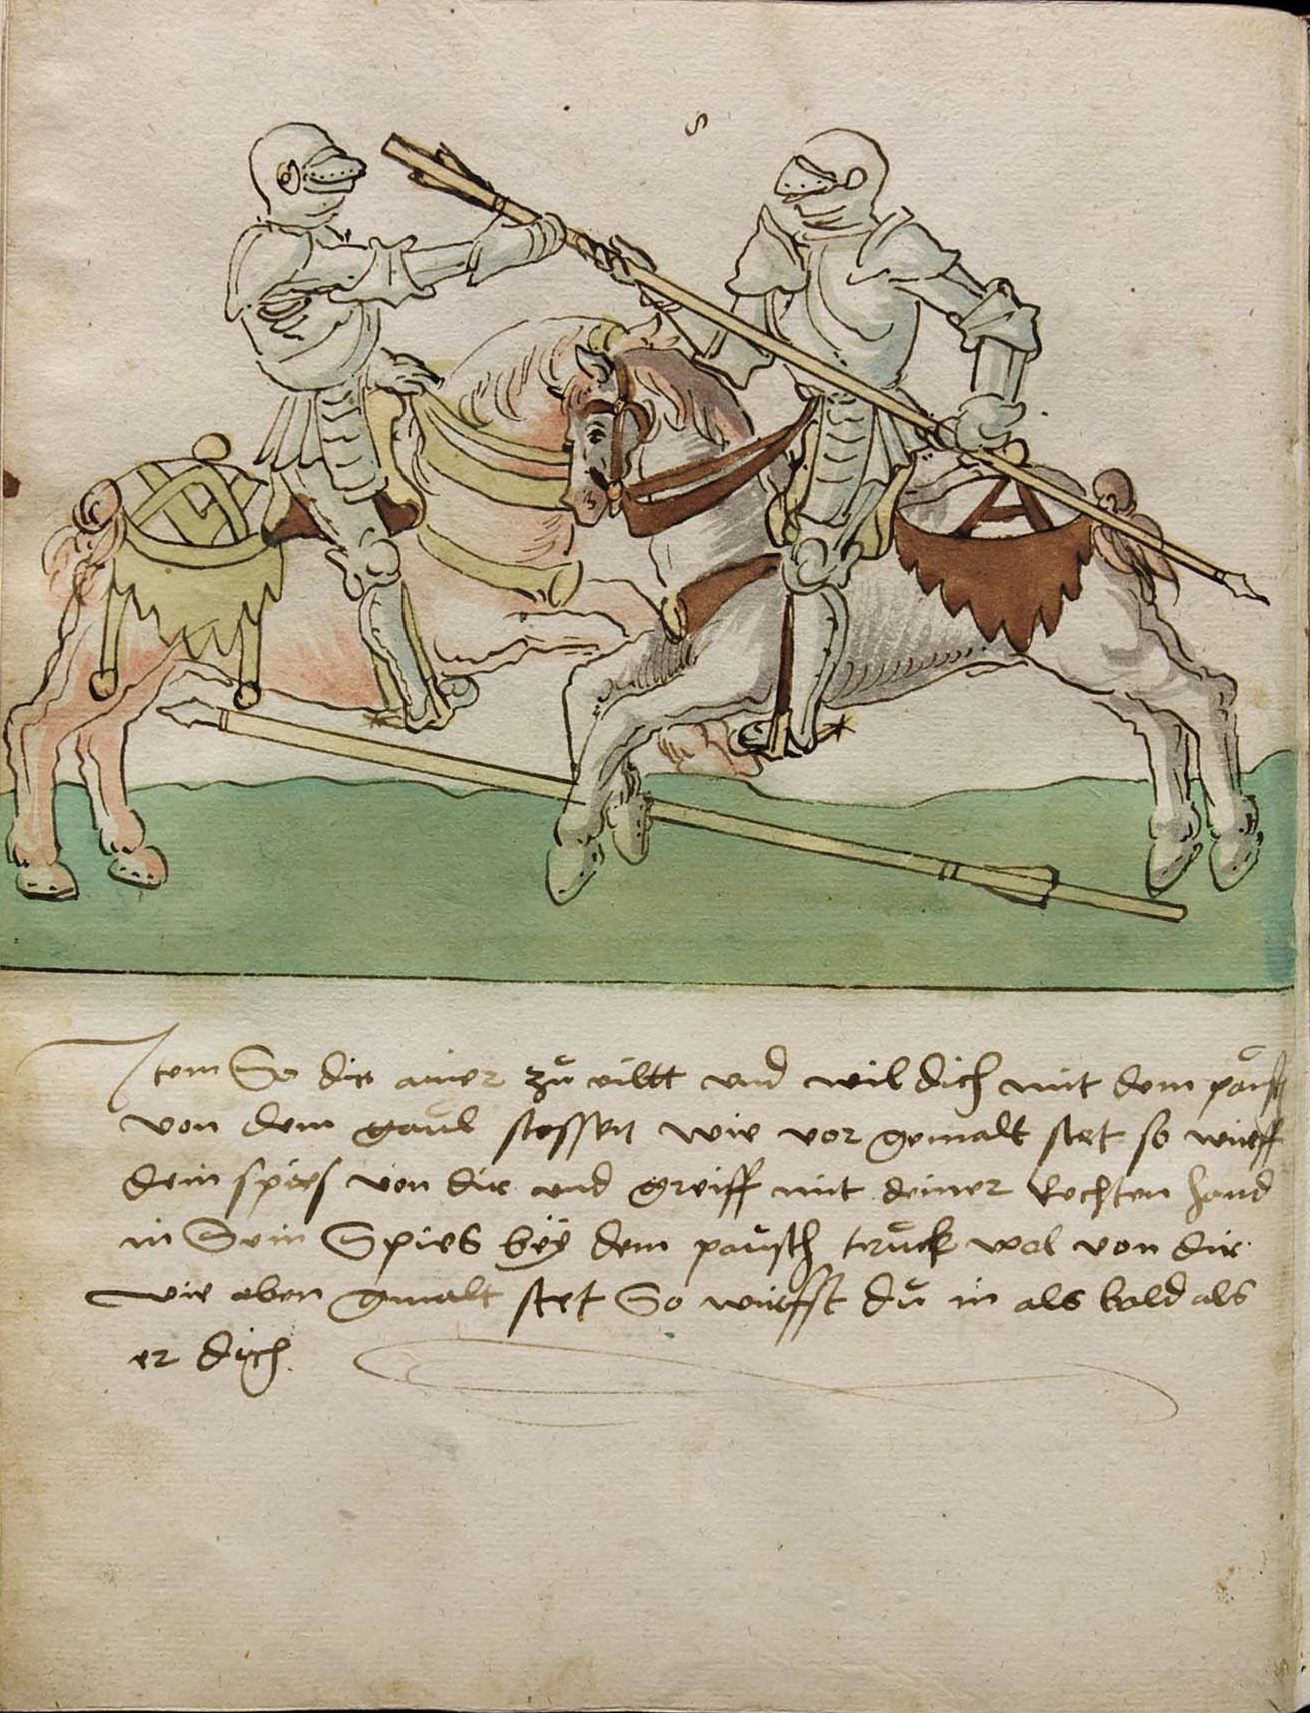 s
Item So dir ainer zů eillt vnd wil dich mit dem paůsch
von dem gaůl stossen wie vor gemalt stet so wirff
dein spies von dir vnd greiff mit deiner Rechten hand
in Sein Spies beÿ dem paůsch trůck wol von dir
wie oben gmalt stet So wirffst dů in als bald als
er dich